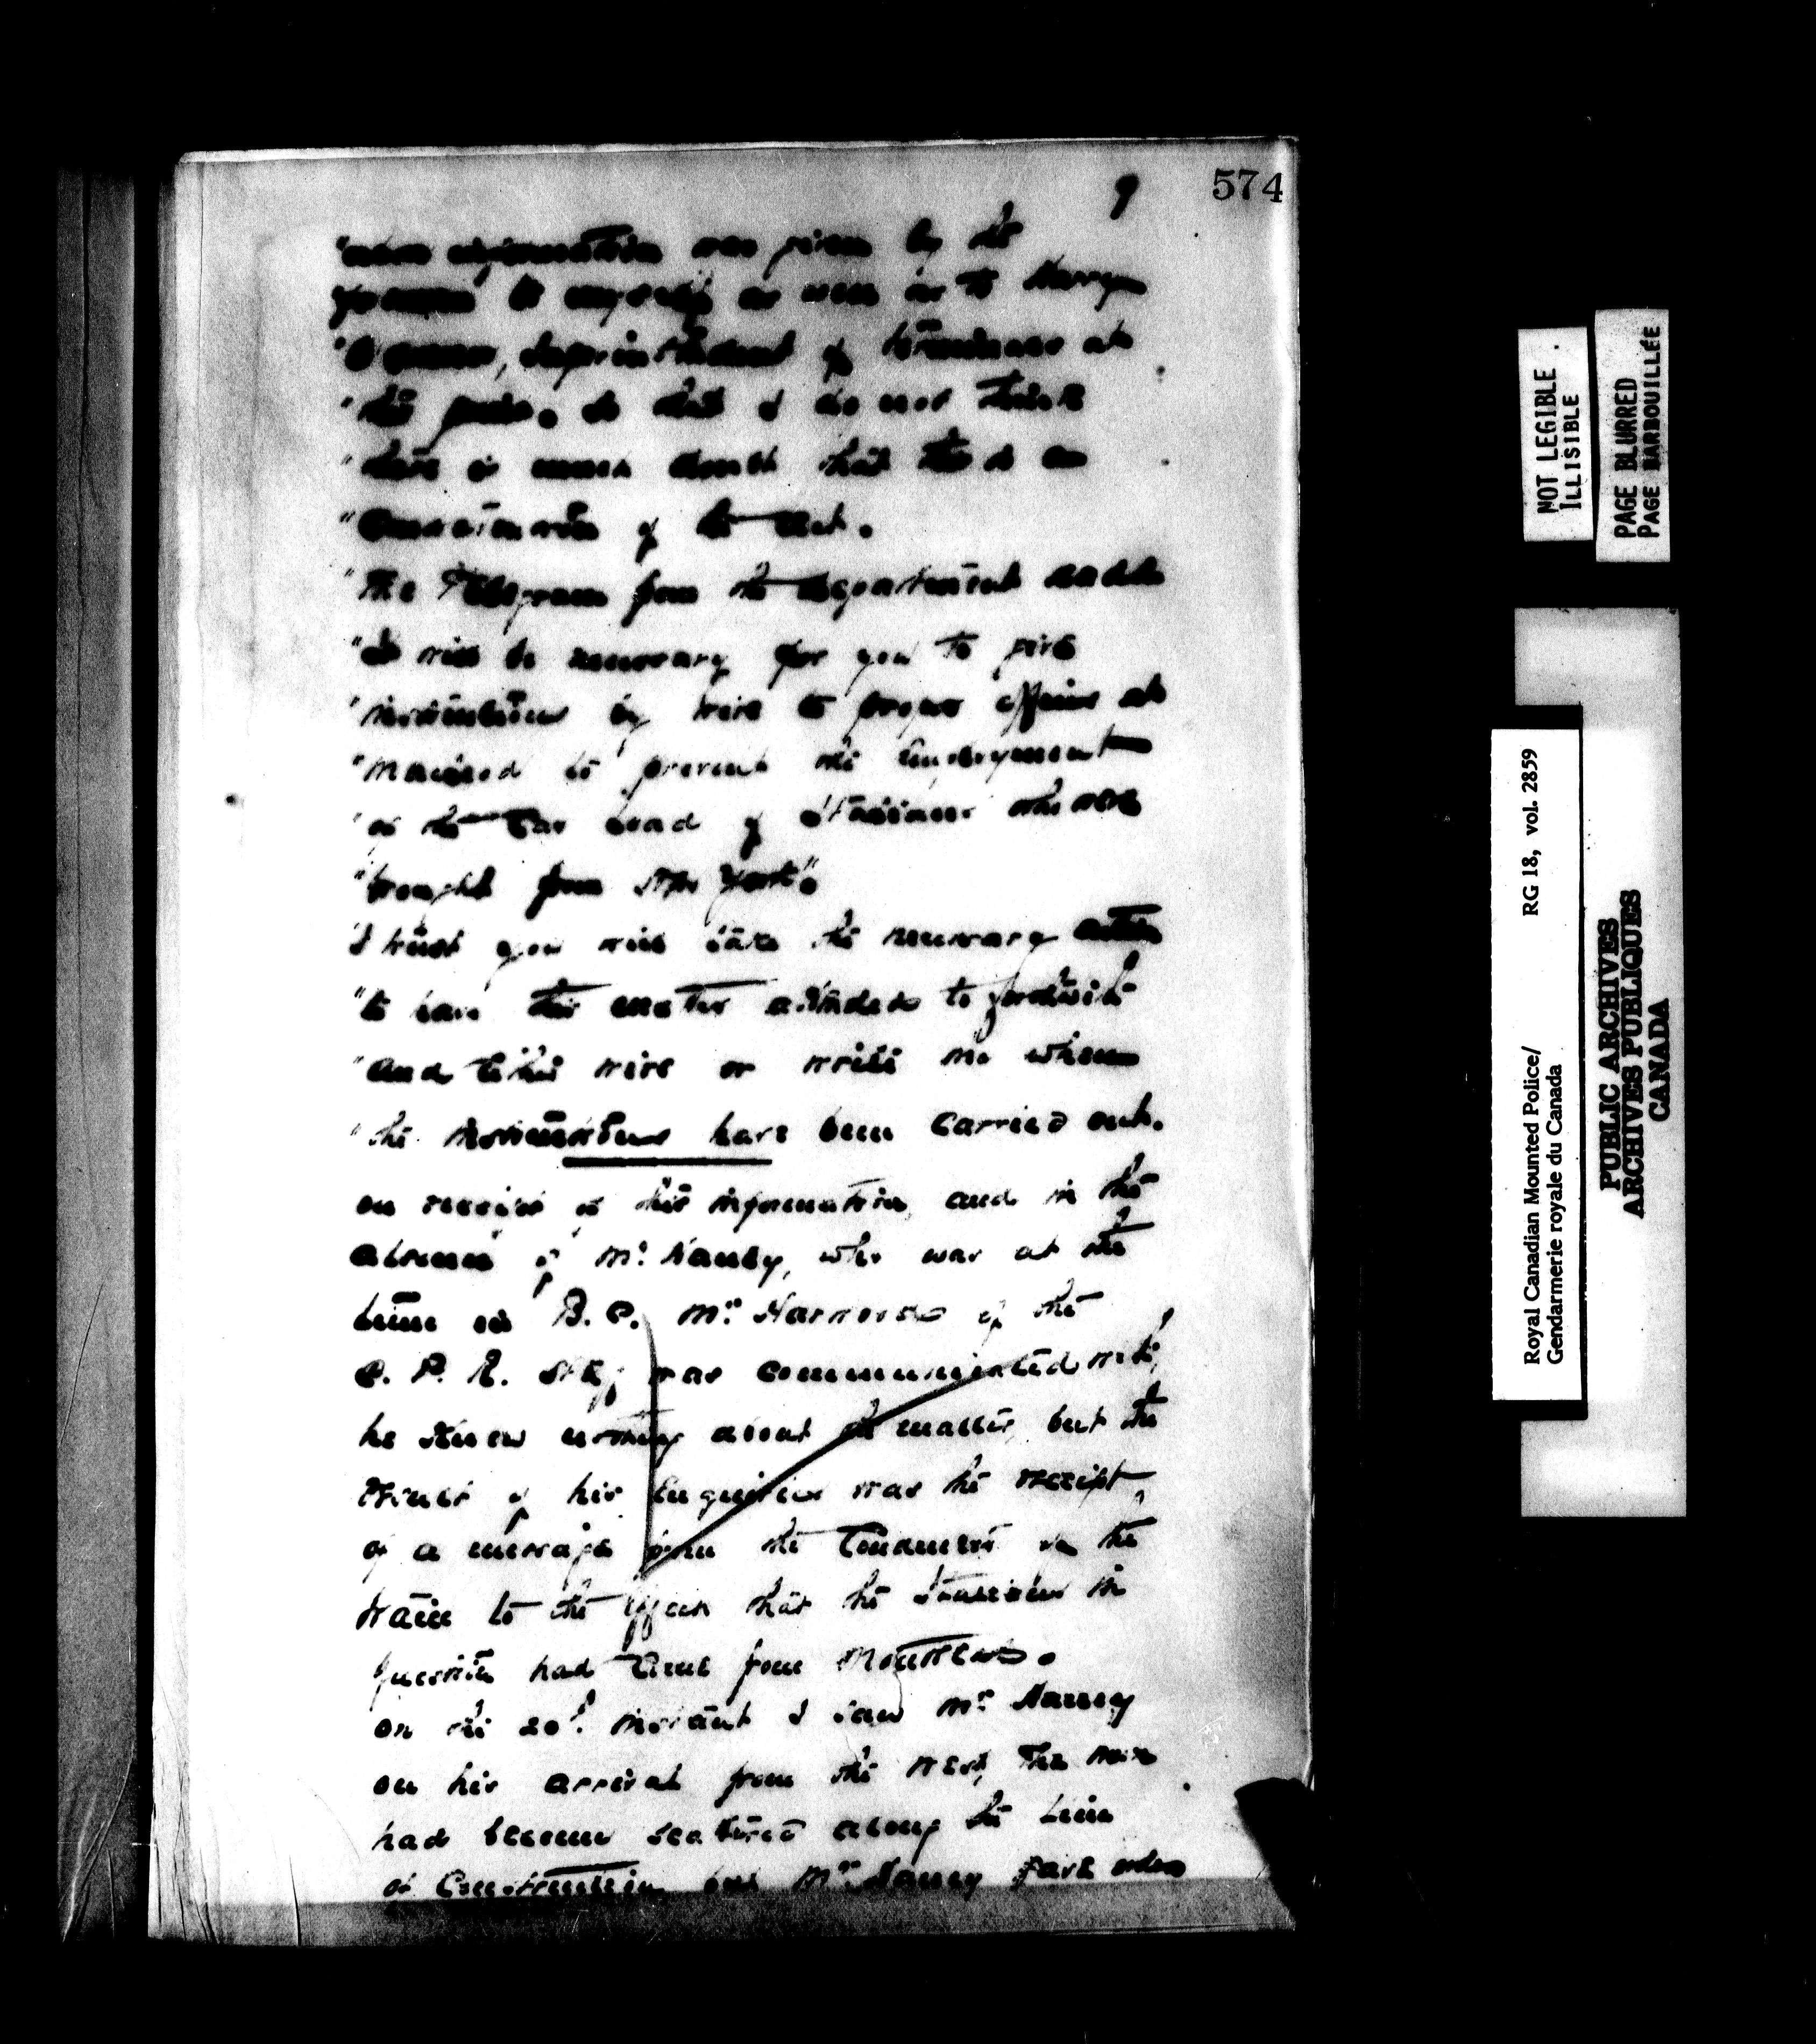 9
574
information was given by the
to myself as well as to
Superintendent of at
"this point. So that I do not think
"there is much doubt that this is a
" of the Act.
"The Telegram from the Department reads
"It will be necessary for you to give
"instructions by wire to proper officer at
" to prevent the employment
"of the Car load of Italians who were
"brought from New York".
"I trust you will take the necessary action
"to have this matter attended to forthwith
"and either wire or write me when
"the instructions have been carried out.
on receipt of this information, and in the
absence of Mr. Haney, who was at the
time in B.C. Mr. of the
C. P. R. Staff was communicated with,
he knew nothing about the matter, but the
result of his enquiries was the receipt
of a message from the Conductor on the
train to the effect that the Italians in
question had come from Montreal.
on the 20th. instant I saw Mr. Haney
on his arrival from the West, The men
had become scattered along the line
of Construction but Mr. Haney gave orders
NOT LEGIBLE
ILLISIBLE
PAGE BLURRED
PAGE BARBOUILLÉE
Royal Canadian Mounted Police/
Gendarmerie royale du Canada
RG 18, vol. 2859
PUBLIC ARCHIVES
ARCHIVES PUBLIQUES
CANADA